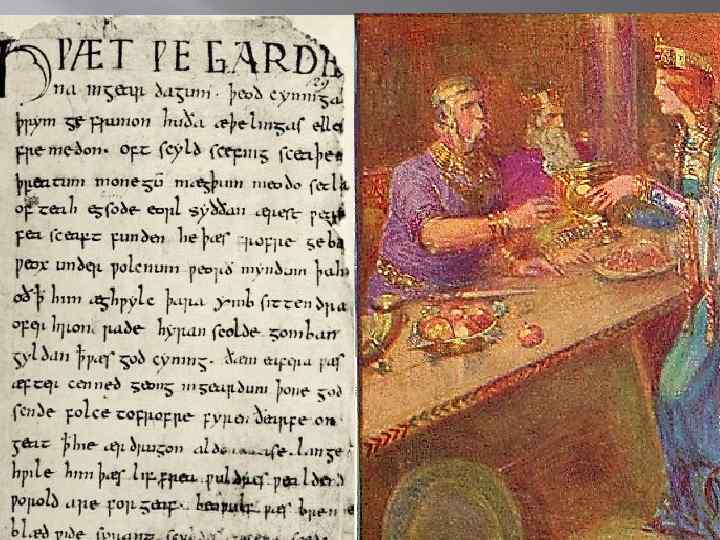 HǷÆT ǷE GARDE
na ingear dagum. þeod cyninga
þrym ge frunon huða æþelingas elle
fre medon. oft scyld scefing sceaþen
þreatum monegū mægþum meodo setla
of teah egsode eorl syððan ærest ƿear
fea sceaft funden he þæs frofre geba
ƿeox under ƿolcnum ƿeorð myndum þah
oð ꝥ him æghƿylc þara ymb sittendra
ofer hron rade hyran scolde gomban
gyldan ꝥ ƿæs god cyning. ðæm eafera ƿæs
æfter cenned geong ingeardum þone god
sende folce tofrofre fyren ðearfe on
geat ꝥ hie ær drugon aldor ase. lange
hƿile him þæs lif frea ƿuldres ƿealdend
ƿorold are for geaf. beoƿulf ƿæs breme
blæd ƿide sprang